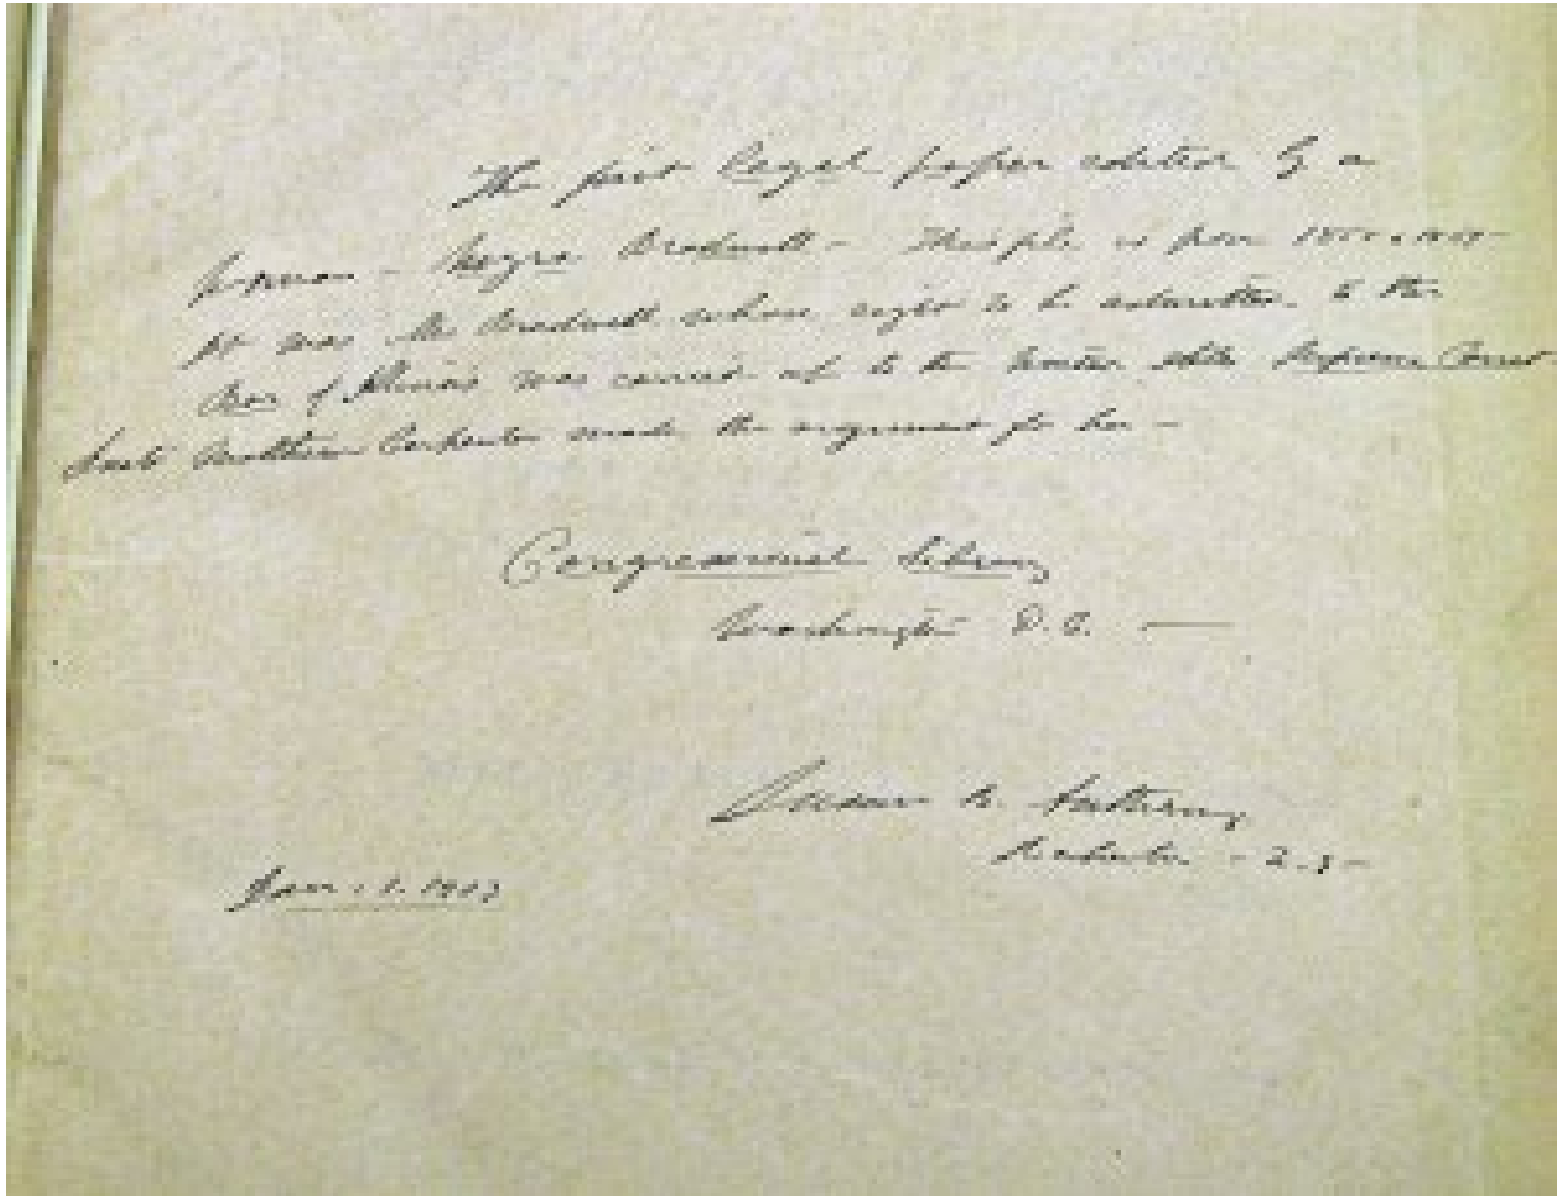 The first legal paper edited by a
woman - Myra Bradwell - This file is from
It was Mrs Bradwell whose right to be admitted to the
Bar of Illinois was carried up to the United States Supreme Court
Matthew Carpenter made the argument for her -
Congressional Library
Washington D.C.
Susan B. Anthony
Rochester -
Jan. 1. 1903